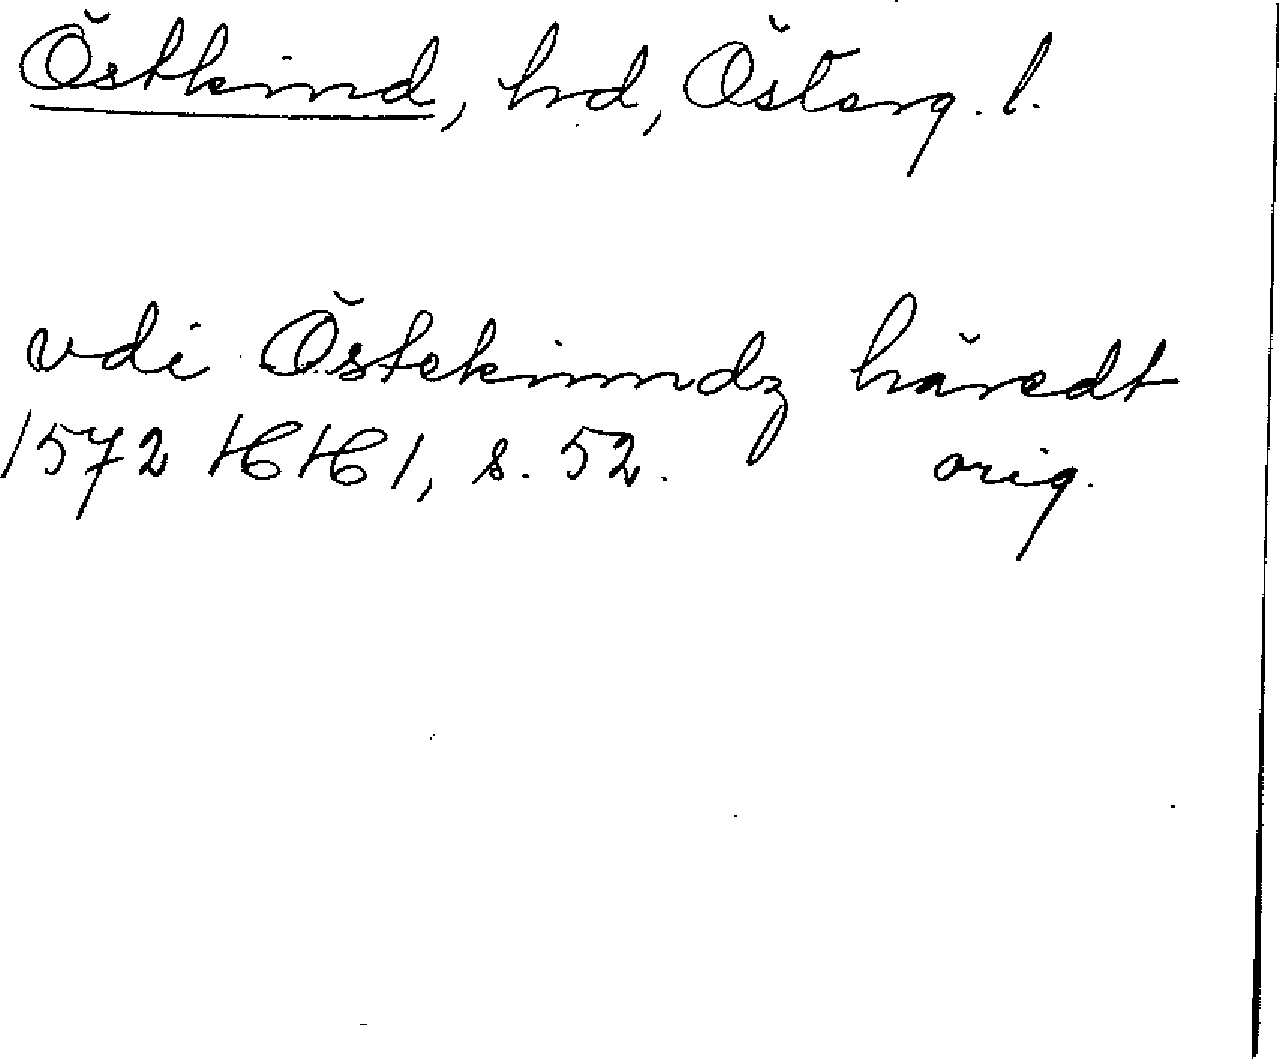 Östkind, hd, Österg. l.
vdi Östekinndz häredt
1572 HH 1, s. 52. orig.